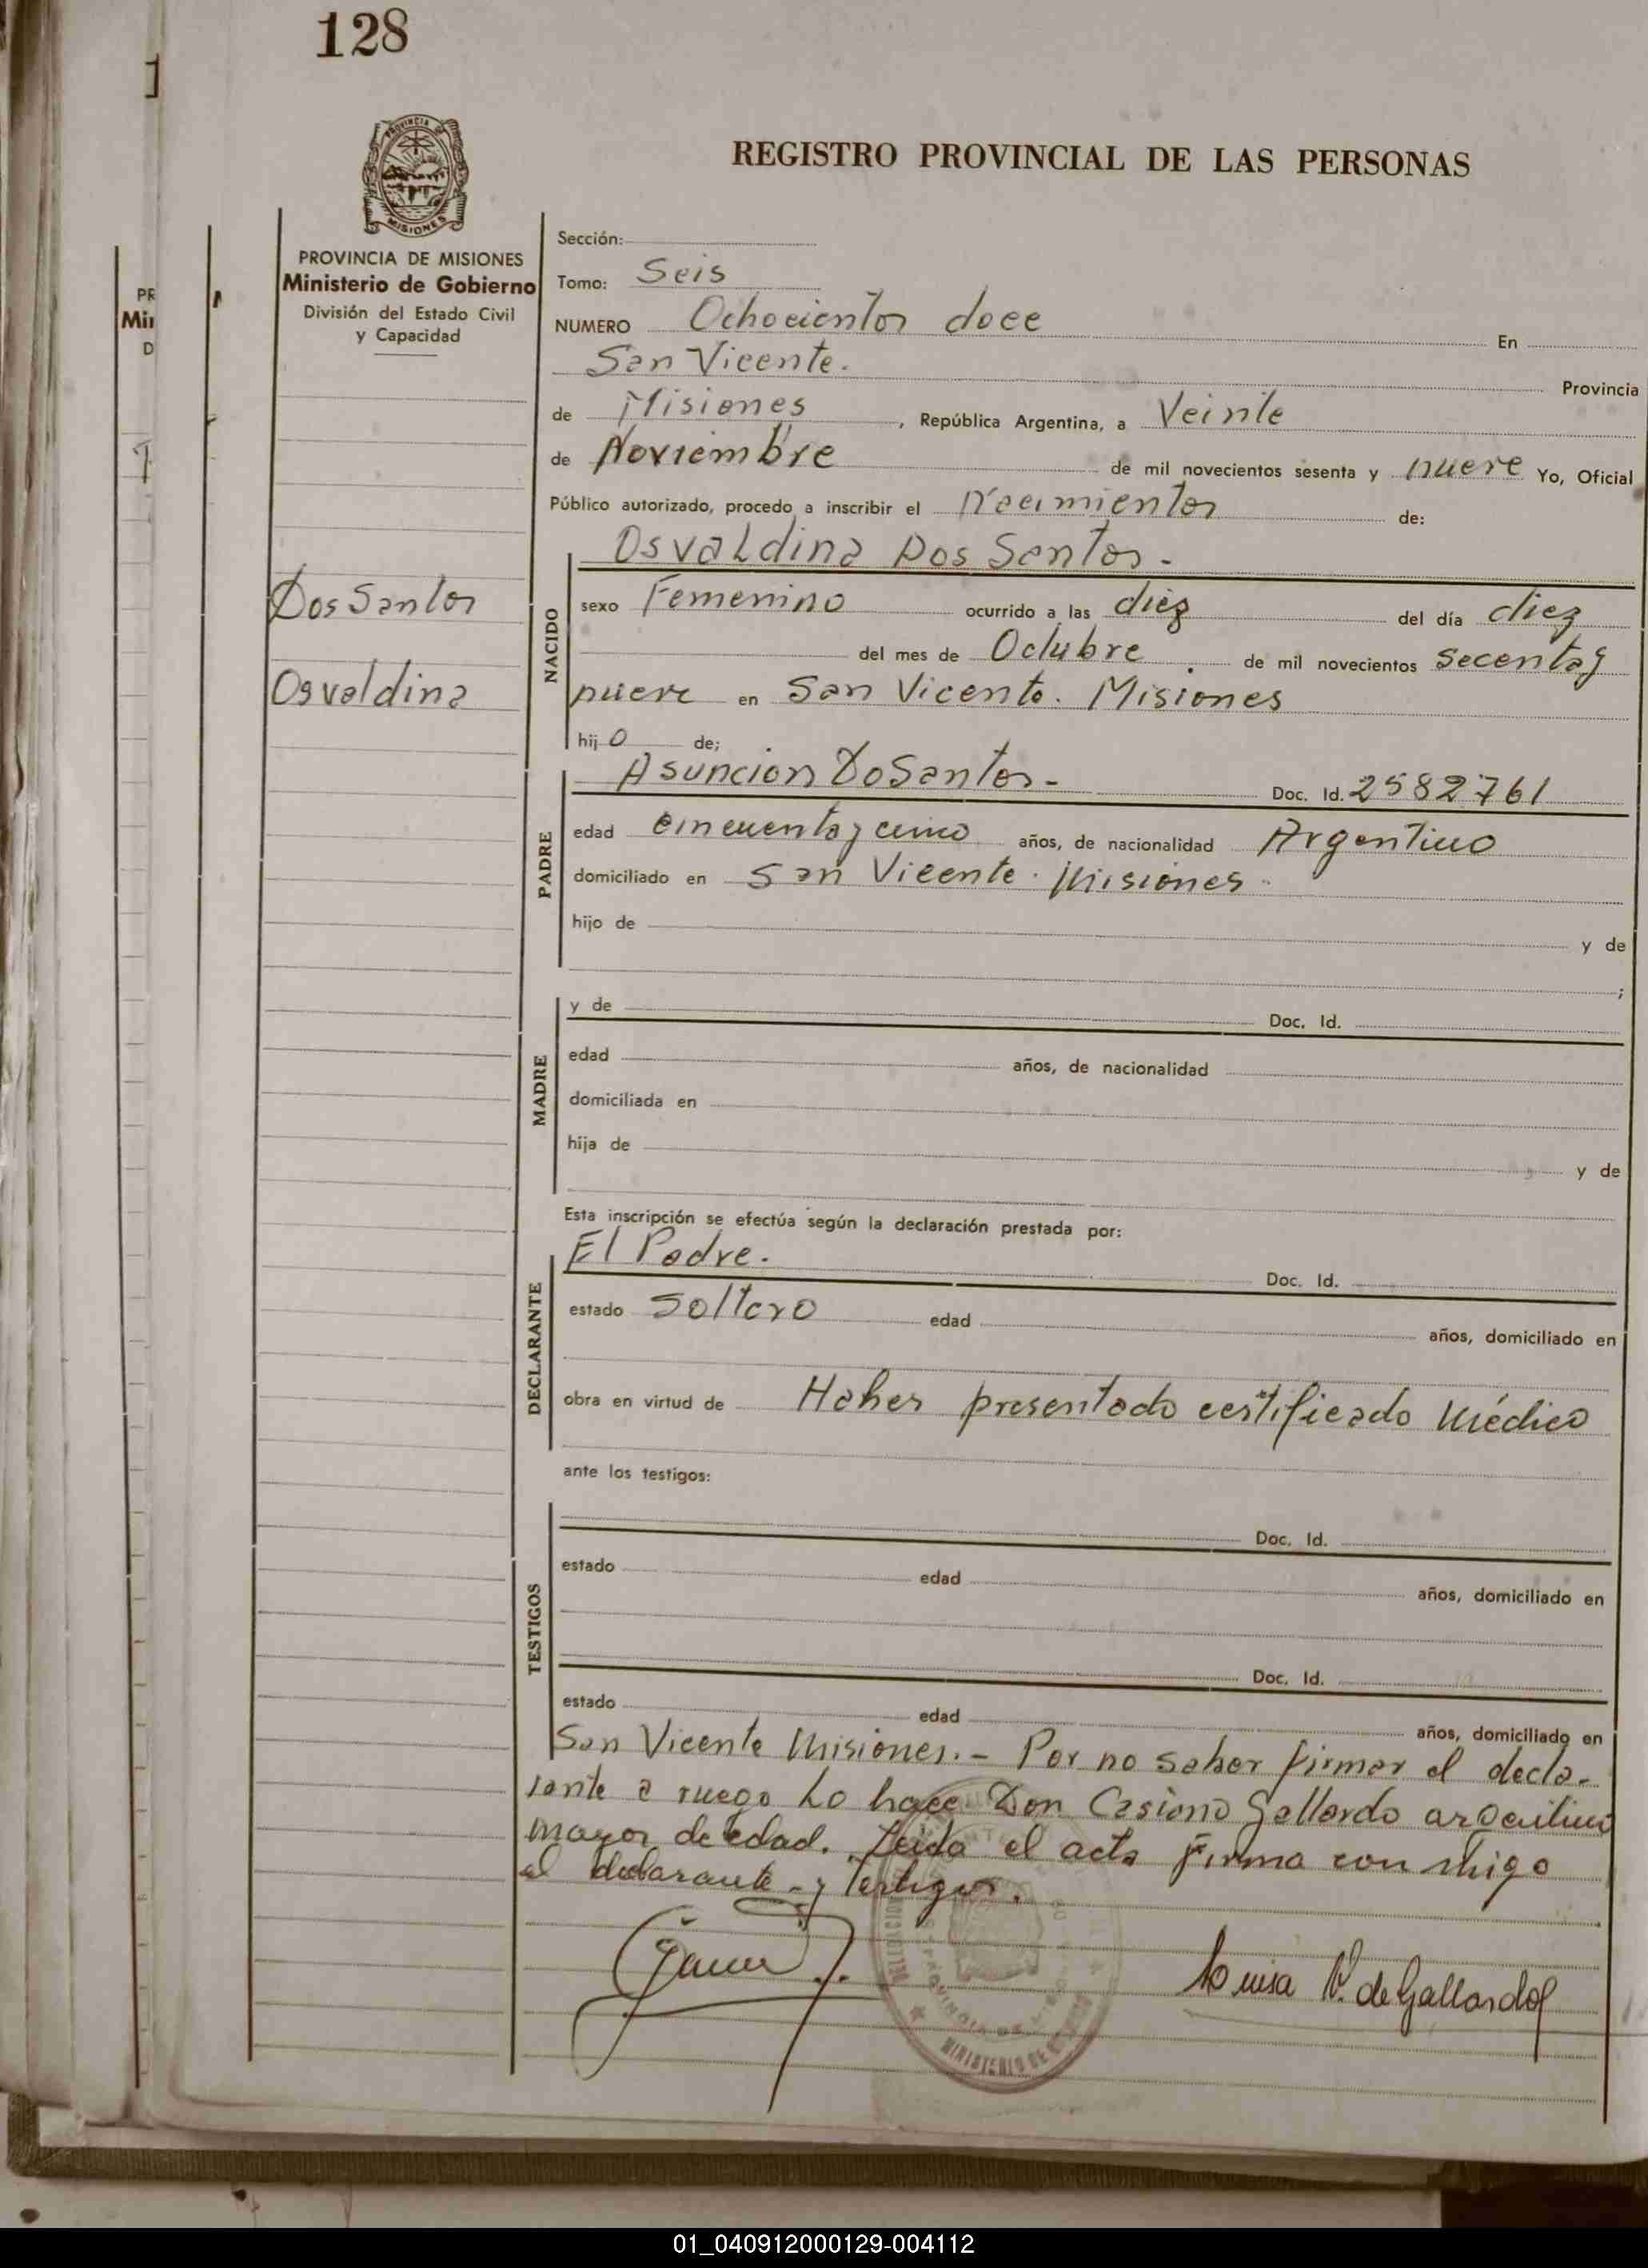 128
PROVINCIA DE MISIONES
Ministerio de Gobierno
División del Estado Civil
y Capacidad
Dos Santos
Osvaldina
REGISTRO PROVINCIAL DE LAS PERSONAS
Sección:
Tomo: Seis
NUMERO Ochocientos doce En
San Vicente. Provincia
de Misiones, República Argentina, a Veinte
de Noviembre de mil novecientos sesenta y nueve Yo, Oficial
Público autorizado, procedo a inscribir el Nacimientos de:
NACIDO
Osvaldina Dos Santos -
sexo Femenino ocurrido a las diez del día diez
del mes de Octubre de mil novecientos secenta y
nueve en San Vicente. Misiones
hijo de;
PADRE
Asuncion DoSantos - Doc. Id. 2582761
edad cincuenta y cinco años, de nacionalidad Argentino
domiciliado en San Vicente. Misiones -
hijo de y de
;
MADRE
y de Doc. Id.
edad años, de nacionalidad
domiciliada en
hija de y de
Esta inscripción se efectúa según la declaración prestada por:
DECLARANTE
El Padre. Doc. Id.
estado Soltero edad años, domiciliado en
obra en virtud de Haber presentado certificado Médico
ante los testigos:
TESTIGOS
Doc. Id.
estado edad años, domiciliado en
Doc. Id.
estado edad años, domiciliado en
San Vicente Misiones. - Por no saber firmar el decla-
rante a ruego Lo hace Don Casiano Gallardo argentino
mayor de edad. Leida el acta firma con migo
el declarante - y Testigos.
Luisa V. de Gallardo
MINISTERIO DE
01_040912000129-004112